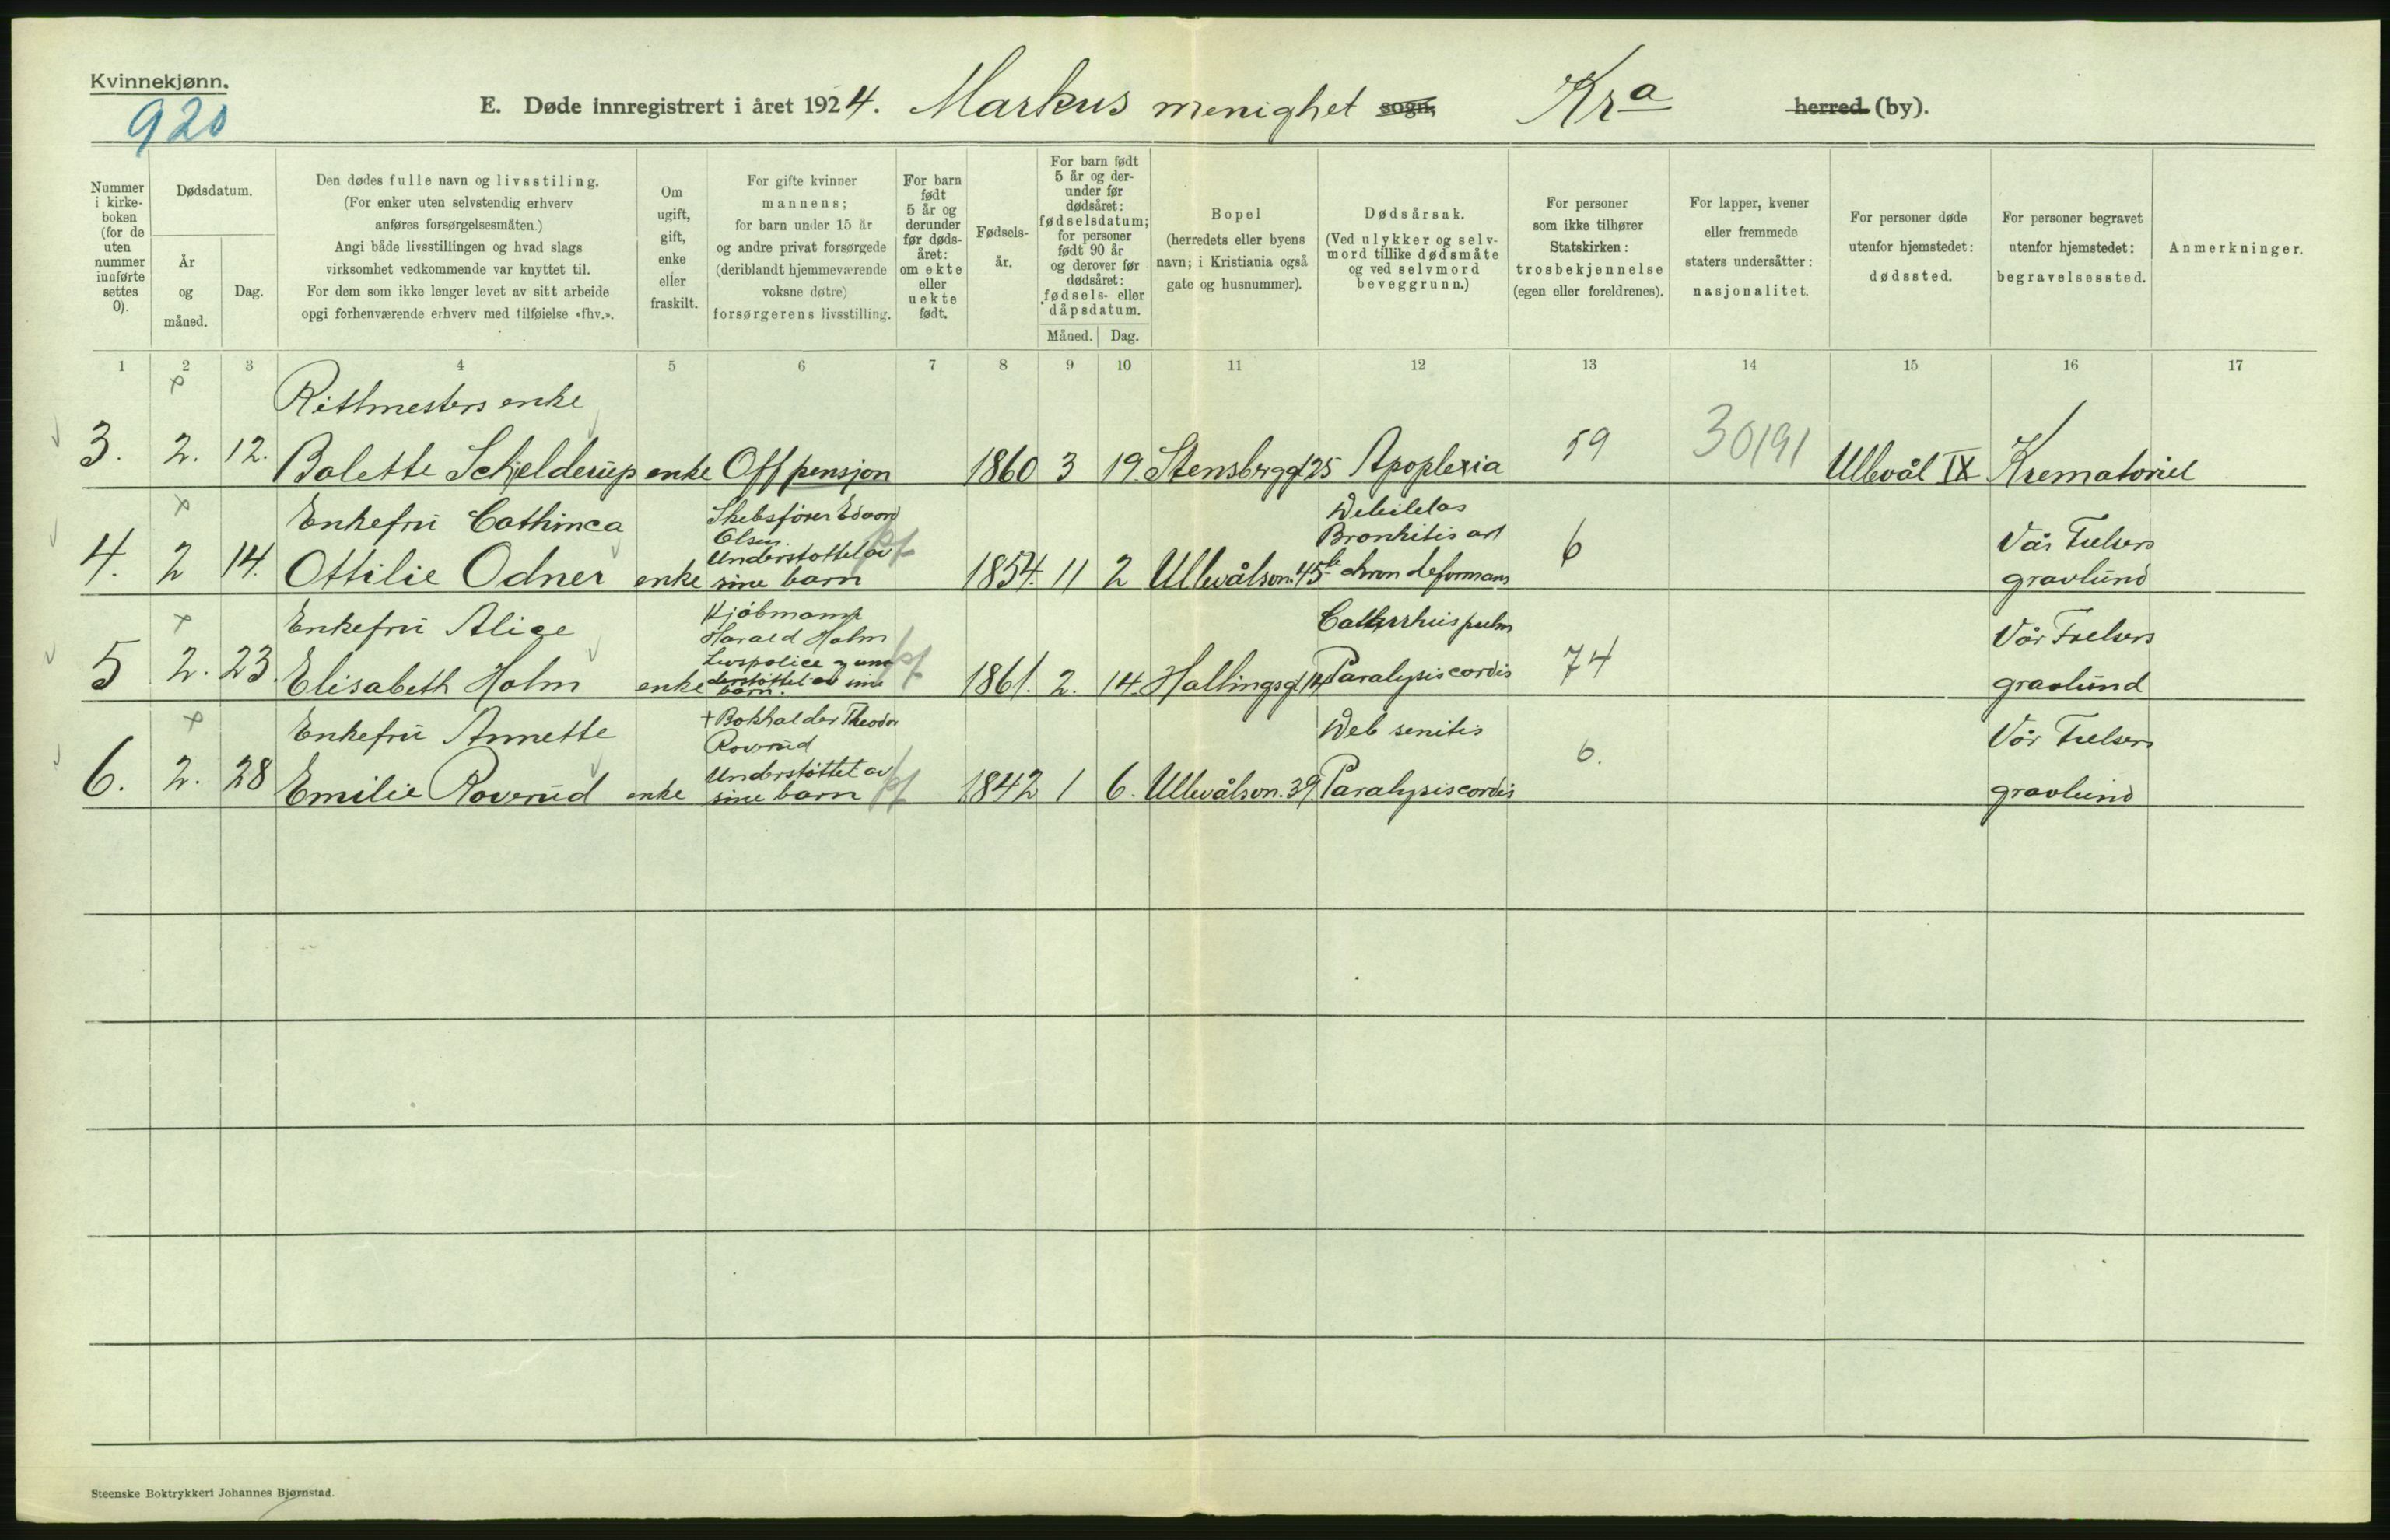 Kvinnekjønn.
920
E. Døde innregistrert i året 1924. Markus menighet sogn, Kra herred (by).
Nummer i kirke-boken (for de uten nummer innførte settes 0).
Dødsdatum.
År og måned.
Dag.
Den dødes fulle navn og livsstilling.
(For enker uten selvstendig erhverv
anføres forsørgelsesmåten.)
Angi både livsstillingen og hvad slags
virksomhet vedkommende var knyttet til.
For dem som ikke lenger levet av sitt arbeide
opgi forhenværende erhverv med tilføielse «fhv.».
Om
ugift,
gift,
enke
eller
fraskilt.
For gifte kvinner
mannens;
for barn under 15 år
og andre privat forsørgede
(deriblandt hjemmeværende
voksne døtre)
forsørgerens livsstilling.
For barn
født
5 år og
derunder
før døds-
året:
om ekte
eller
uekte
født.
Fødsels-
år.
For barn født
5 år og der-
under før
dødsåret:
fødselsdatum;
for personer
født 90 år
og derover før
dødsåret:
fødsels- eller
dåpsdatum.
Måned.
Dag.
Bopel
(herredets eller byens
navn; i Kristiania også
gate og husnummer).
Dødsårsak.
(Ved ulykker og selv-
mord tillike dødsmåte
og ved selvmord
beveggrunn.)
For personer
som ikke tilhører
Statskirken:
trosbekjennelse
(egen eller foreldrenes).
For lapper, kvener
eller fremmede
staters undersåtter:
nasjonalitet.
For personer døde
utenfor hjemstedet:
dødssted.
For personer begravet
utenfor hjemstedet:
begravelsessted.
Anmerkninger.
1 2 3 4 5 6 7 8 9 10 11 12 13 14 15 16 17
Rittmesters enke
3. 2. 12. Bolette Schjelderup enke Off pensjon 1860 3 19. Stensbergg 25 Apoplexia 59 30191 Ullevål IX Krematoriet
Enkefru Cathinca Skibsfører Edvard Debilitas
Olsen Bronkitis art Vår Frelsers
4. 2 14. Ottilie Odner enke Understøttet av sine barn 1854. 11 2 Ullevålsvn. 45 chron deformans 6 gravlund
Enkefru Alice Kjøbmann Catarrhus pulm Vår Frelsers
Harald Holm
5 2. 23. Elisabeth Holm enke Livspolice og understøttet av sine barn. 1861. 2. 14. Hallingsg. 14 Paralysis cordis 74 gravlund
Enkefru Annette + Bokholder Theodor Deb senilis Vår Frelsers
Roverud
6. 2. 28 Emilie Roverud enke Understøttet av sine barn 1842 1 6. Ullevålsvn. 39. Paralysis cordis 6. gravlund
Steenske Boktrykkeri Johannes Bjørnstad.